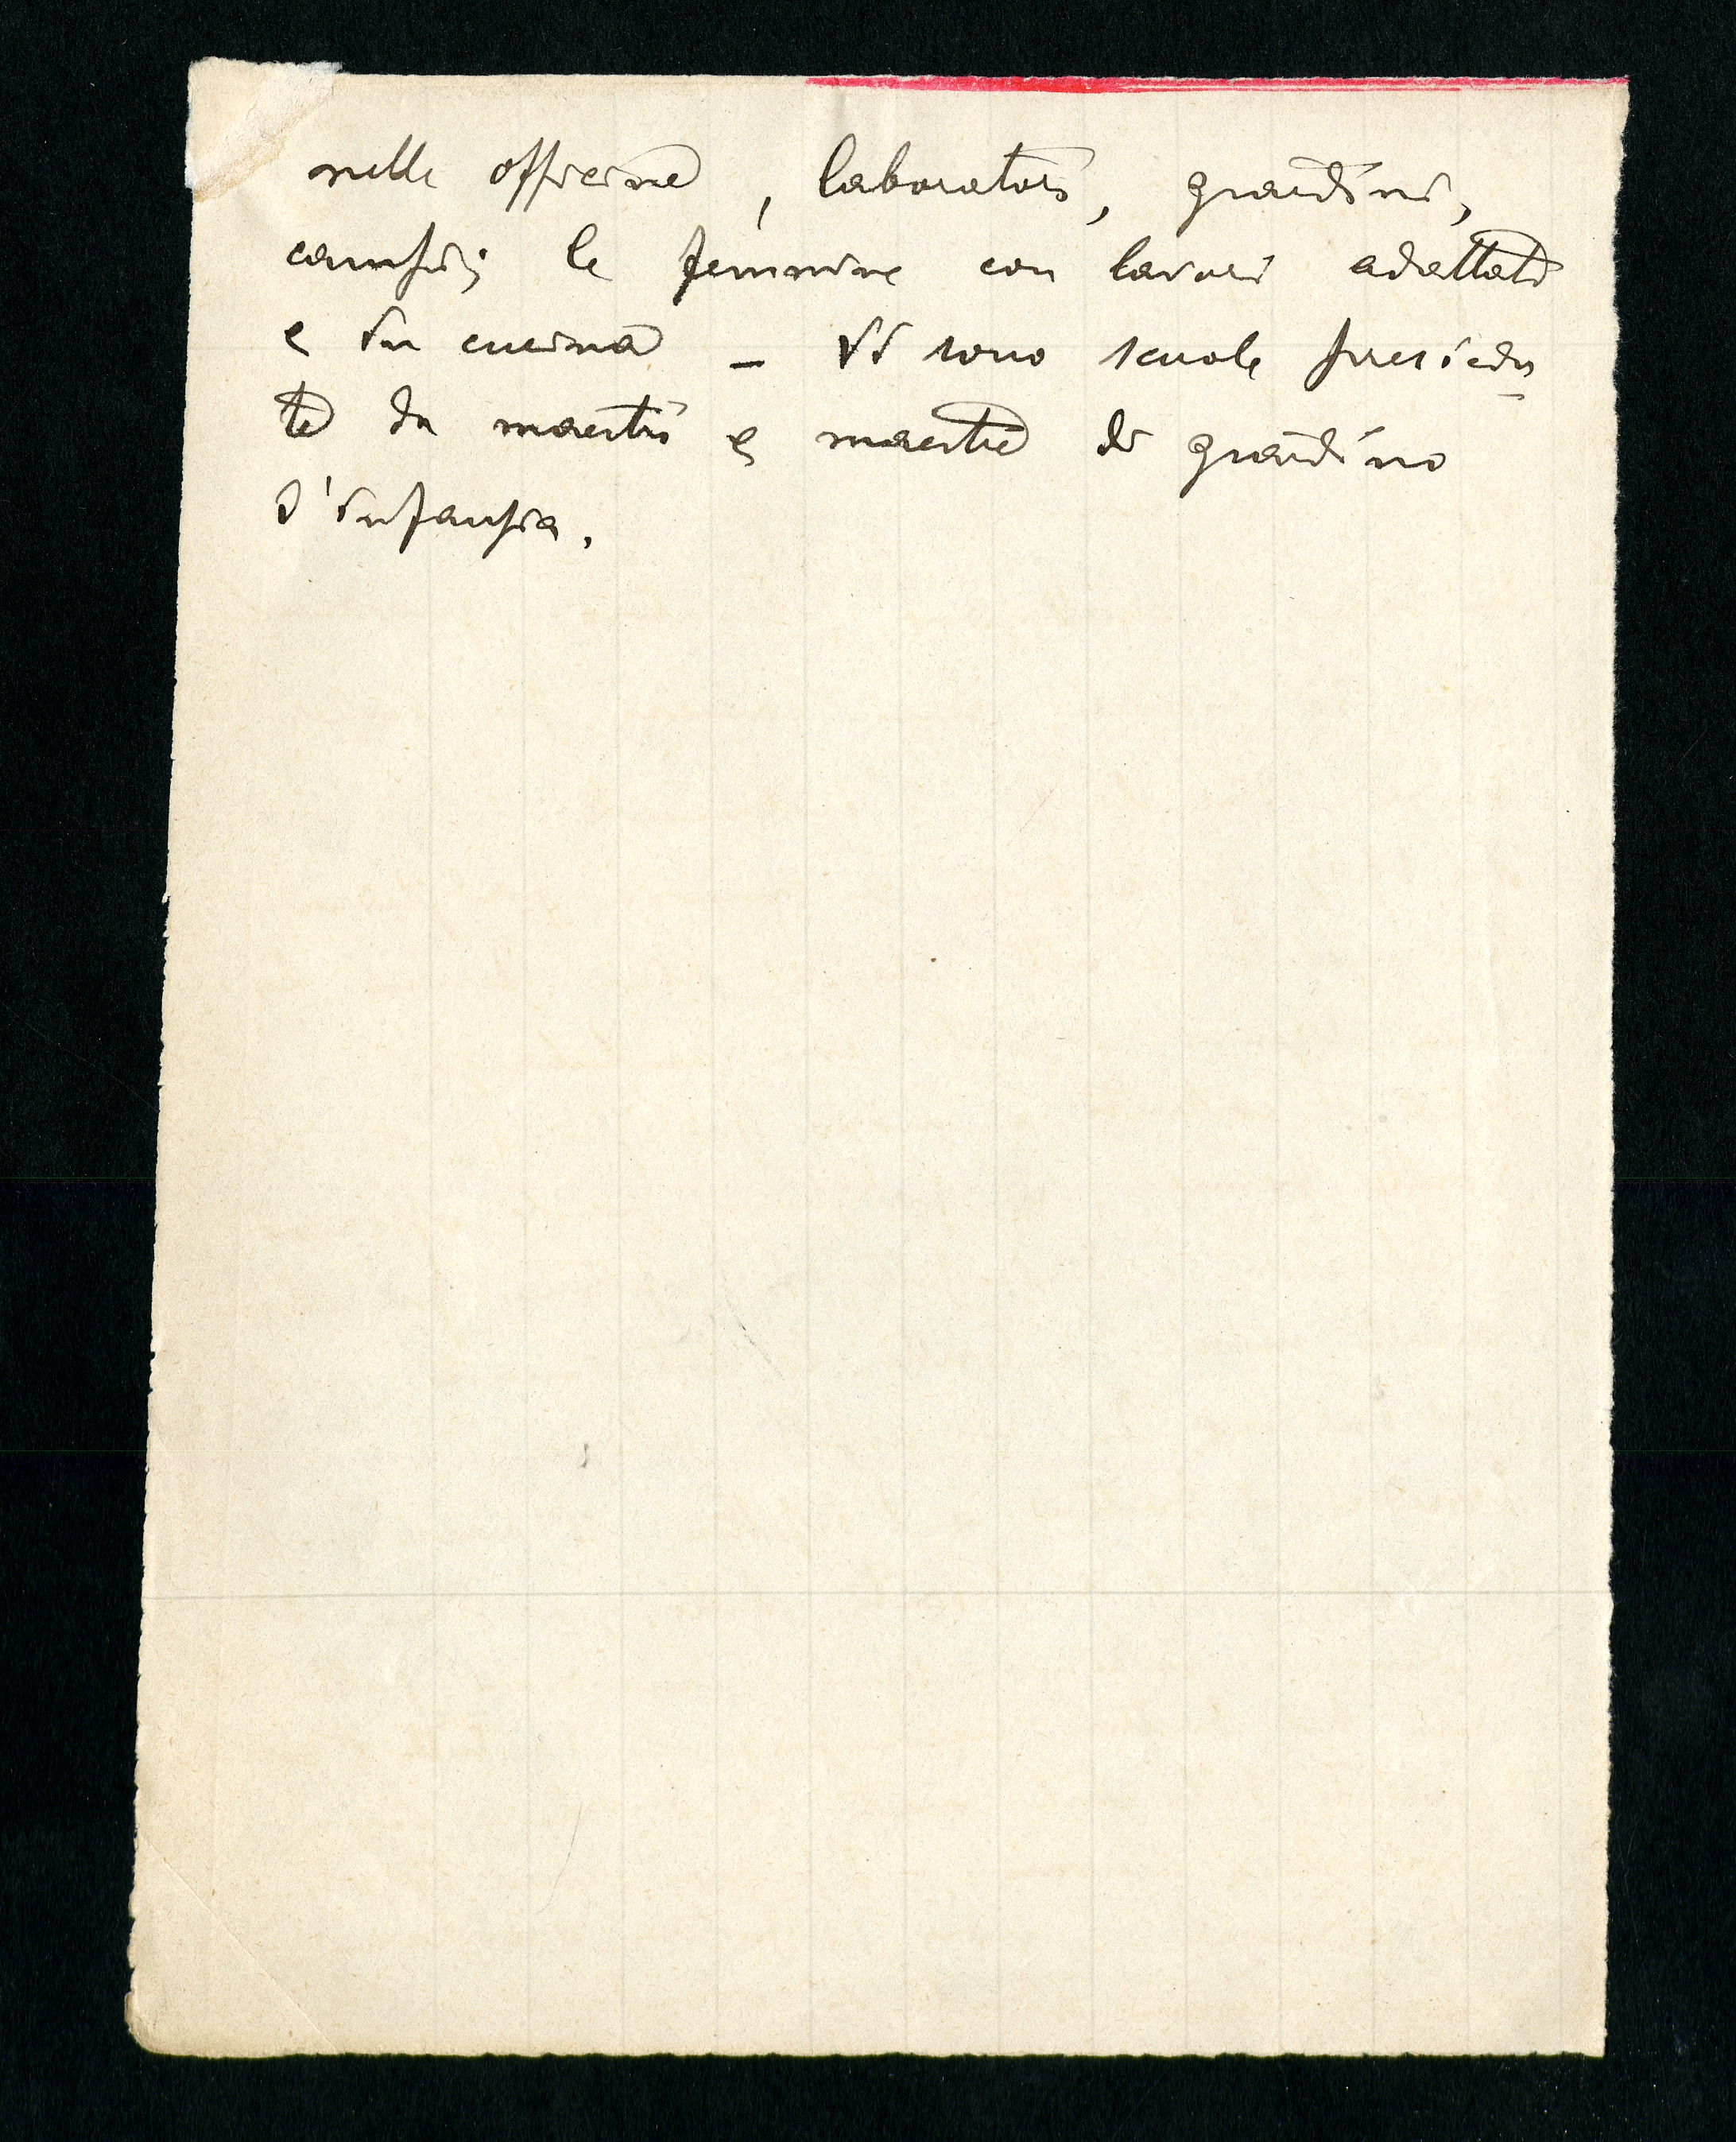 nelle officine, laboratori, giardini,
campi; le femmine con lavori adattati
e in cucina - Vi sono scuole presiedu
te da maestri e maestre di giardino
d'infanzia.